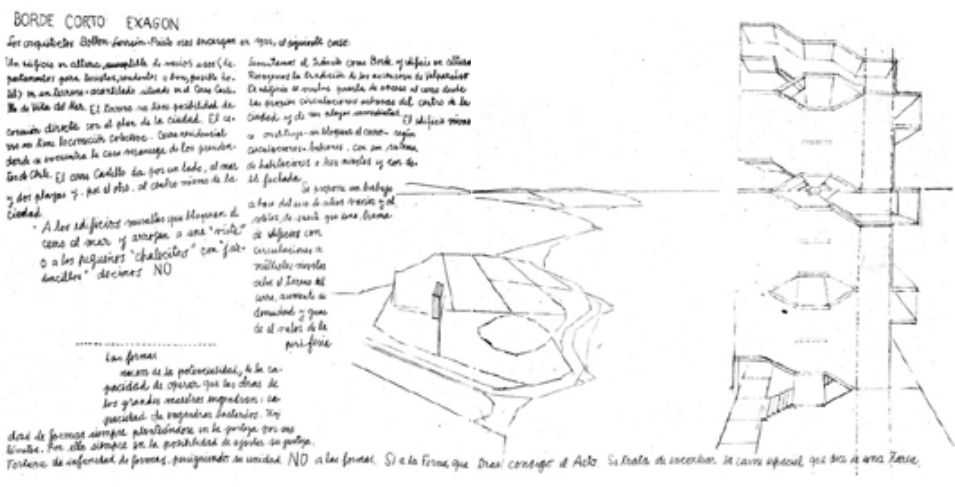 BORDE CORTO EXAGON
Los arquitectos Bollon-Lorrain-Prieto nos encargan en 1971, el siguiente caso:
Un edificio en altura, susceptible de varios usos (de-
partamentos para turistas, residentes o bien, posible ho-
tel) en un terreno acantilado situado en el Cerro Casti-
llo de Viña del Mar. El terreno no tiene posibilidad de
conexión directa con el plan de la ciudad. El ce-
rro no tiene locomoción colectiva. Cerro residencial
donde se encuentra la casa veraniega de los presiden-
tes de Chile. El cerro Castillo da por un lado, al mar
y dos playas y, por el otro, al centro mismo de la
ciudad.
"A los edificios murallas que bloquean el
cerro al mar y arrojan a una "vista"
o a los pequeños "chalecitos" con "jar-
dincillos" decimos NO
Las formas
nacen de la potencialidad, de la ca-
pacidad de operar que las obras de
los grandes maestros engendran: ca-
pacidad de engendrar bastardos.
dad de formas siempre planteándose en la
límites. Por ello siempre en la posibilidad de
Tortura de infinidad de formas, persiguiendo su unidad. NO a las formas, SI a la Forma que trae consigo el Acto. Se trata de encontrar la carne espacial que dice a una Tarea.
el tránsito como Borde y edificio en altura
Recogemos la tradición de los ascensores de Valparaíso
El edificio se vuelve puerta de acceso al cerro desde
las propias circulaciones urbanas del centro de la
ciudad y de sus playas inmediatas. El edificio mismo
se construye sin bloquear el cerro según
circulaciones-balcones, con un sistema
de habitaciones a tres niveles y con do-
ble fachada.
Se propone un trabajo
a base del uso de sitios vacíos y el
de suerte que una trama
de edificios con
circulaciones a
múltiples niveles
sobre el terreno del
cerro, aumenta la
densidad y
el valor de la
periferia